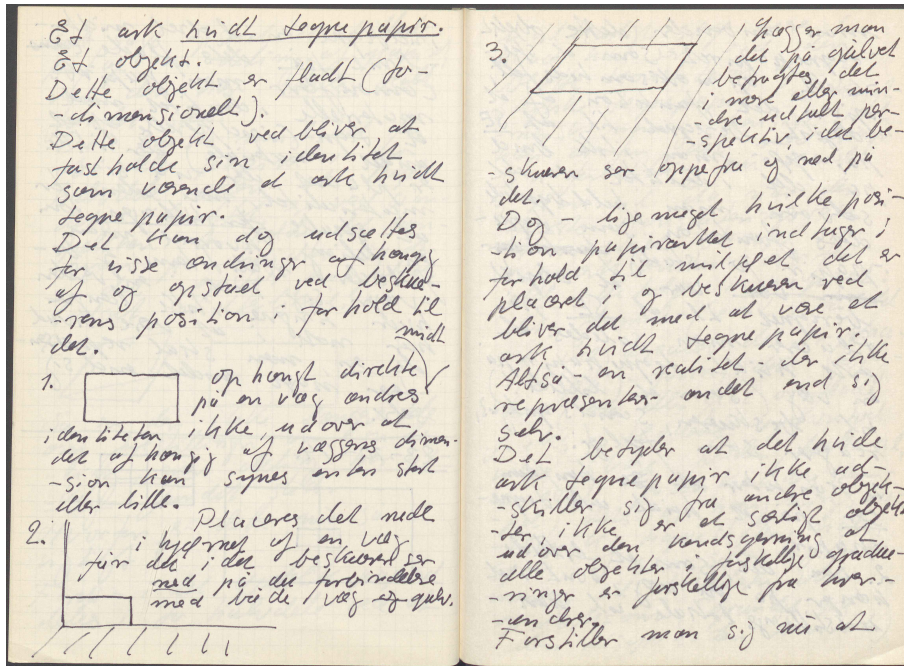 Et ark hvidt tegnepapir.
Et objekt.
Dette objekt er fladt (to-
-dimensionelt).
Dette objekt vedbliver at
fastholde sin identitet
som værende et ark hvidt
tegnepapir.
Det kan dog udsættes
for visse ændringer afhængig
af og opstået ved beskue-
-rens position i forhold til
det.
midt
1. ophængt direkte
på en væg ændres
identiteten ikke, udover at
det afhængig af væggens dimen-
-sion kan synes enten stort
eller lille.
2. Placeres det nede
i hjørnet af en væg
får det idet beskueren ser
ned på det forbindelse
med både væg og gulv.
3. Lægger man
det på gulvet
betragtes det
i mere eller min-
-dre udtalt per-
-spektiv, idet be-
-skueren ser oppefra og ned på
det.
Dog - lige meget hvilke posi-
-tion papirarket indtager i
forhold til miljøet det er
placeret i og beskueren ved
bliver det med at være et
ark hvidt tegnepapir.
Altså - en realitet - der ikke
repræsenterer andet end sig
selv.
Det betyder at det hvide
ark tegnepapir ikke ad-
-skiller sig fra andre objek-
-ter, ikke er et særligt objekt
udover den kendsgerning at
alle objekter i forskellige gradue-
-ringer er forskellige fra hver-
-andre.
Forstiller man sig nu at